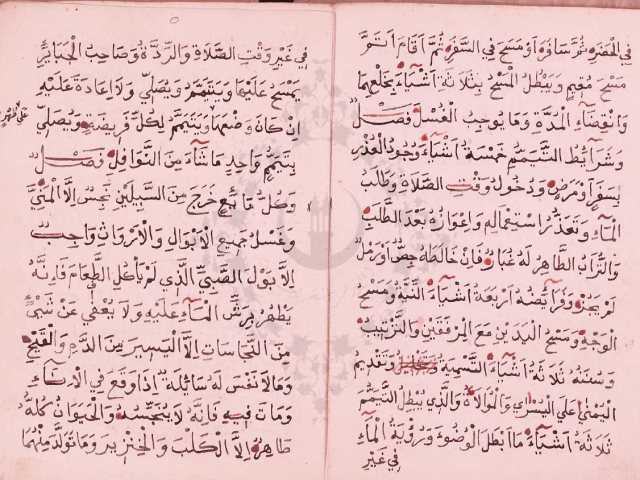 في الحضر ثم سافر او مسح في السفر ثم اقام اتم
مسح مقيم ويبطل المسح بثلاثة اشياء بخلعهما
وانقضاء المدة وما يوجب الغسل فصل
وشرايط التيمم خمسة اشياء وجود العذر
بسفر او مرض ودخول وقت الصلاة وطلب
الماء وتعذر استعماله واعوازه بعد الطلب
والتراب الطاهر له غبار فان خالطه جص او رمل
لم يجز وفرايضه اربعة اشياء النية ومسح
الوجه ومسح اليدين مع المرفقين والترتيب
وسننه ثلاثة اشياء التسمية وتقديم
اليمنى على اليسرى والموالاة والذي يبطل التيمم
ثلاثة اشياء ما ابطل الوضوء ورؤية الماء
في غير
في غير وقت الصلاة والردة وصاحب الجباير
يمسح عليها ويتيمم ويصلي ولا اعادة عليه
ان كان وضعها ويتيمم لكل فريضة ويصلي
على طهر
بتيمم واحد ما شاء من النوافل فصل
وكل مايع خرج من السبيلين نجس الا المني
وغسل جميع الابوال والارواث واجب
الا بول الصبي الذي لم ياكل الطعام فانه
يطهر برش الماء عليه ولا يعفي عن شيء
من النجاسات الا اليسير من الدم والقيح
وما لا نفس له سائلة اذا وقع في الاناء
ومات فيه فانه لا ينجسه والحيوان كله
طاهر الا الكلب والخنزير وما تولد منهما